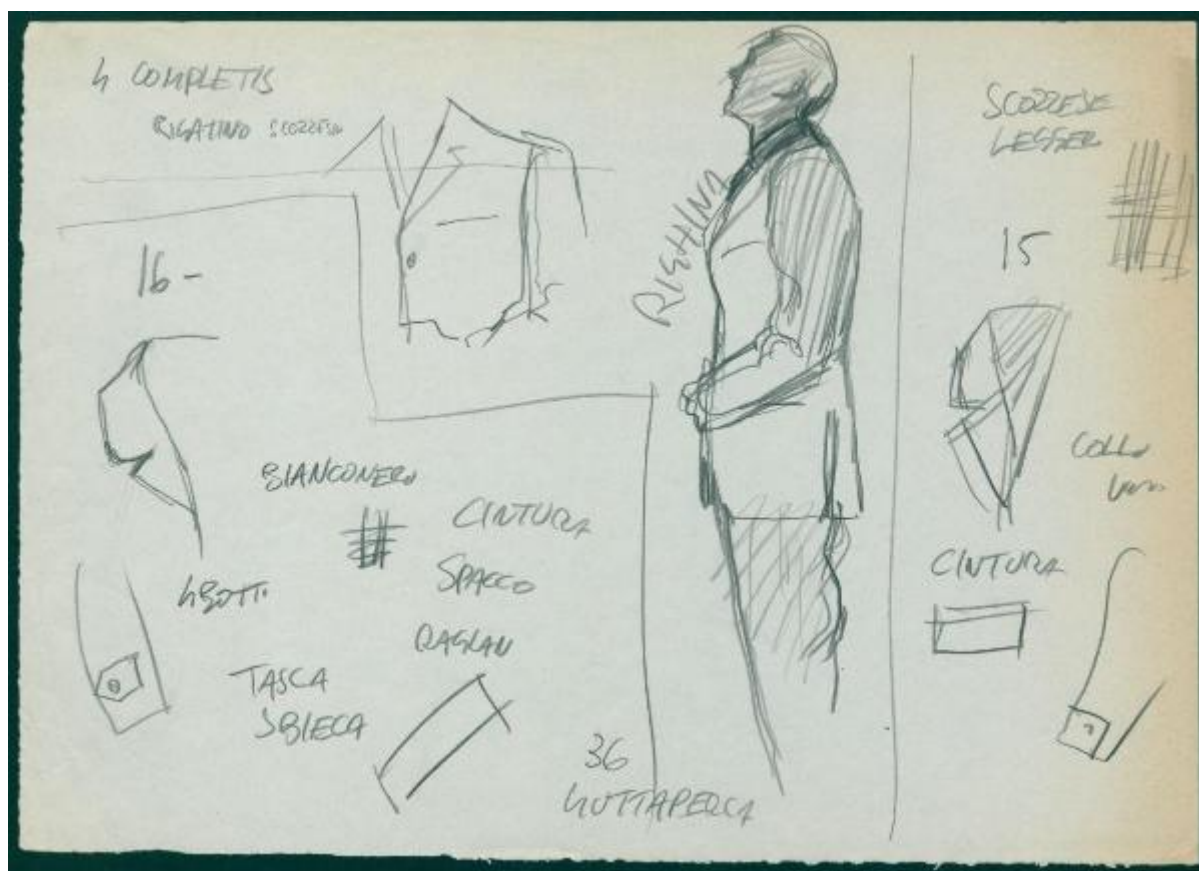 4 COMPLETIS
RIGATINO SCOZZESE
16-
BIANCONERO
CINTURA
SPACCO
RAGLAN
4 BOTT.
TASCA
SBIECA
36
GUTTAPERCA
RIGHINA
SCOZZESE
LESSER
15
COLLO
CINTURA